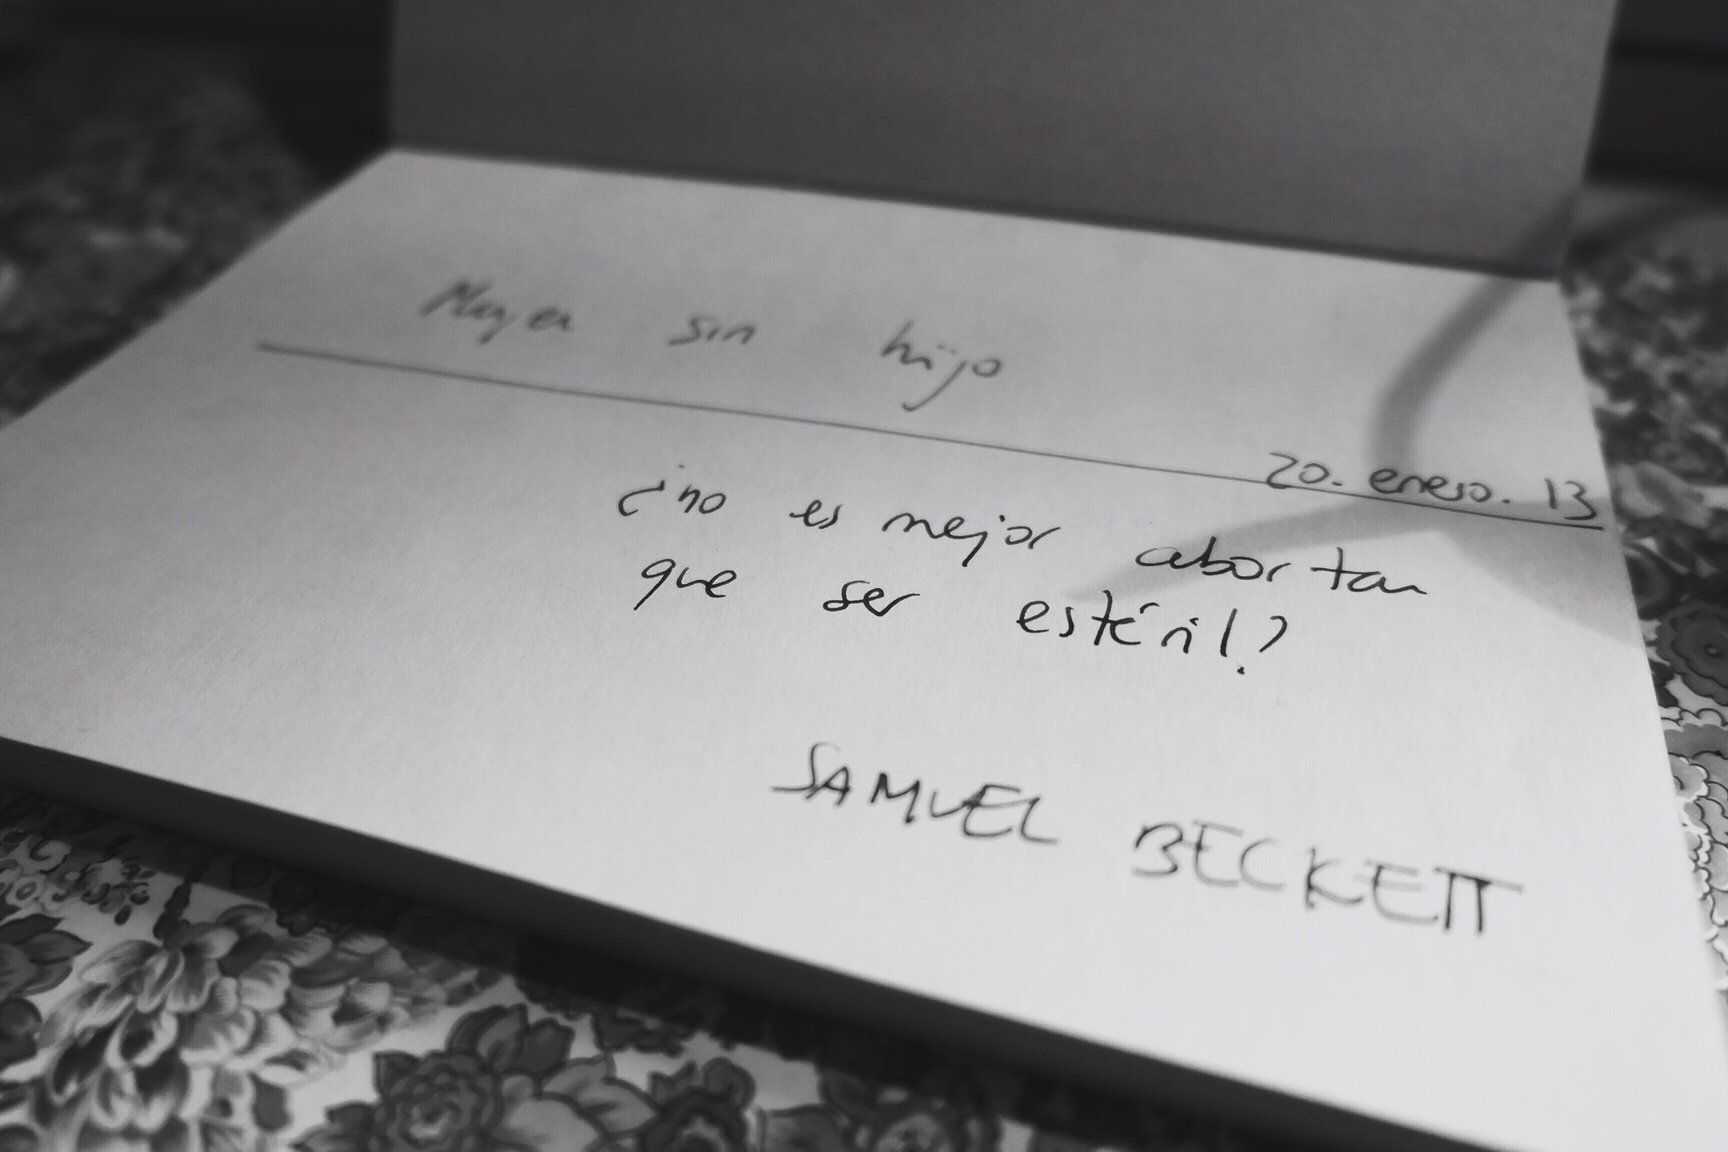 Mujer sin hijo
20. enero. 13
¿no es mejor abortar
que ser estéril?
SAMUEL BECKETT